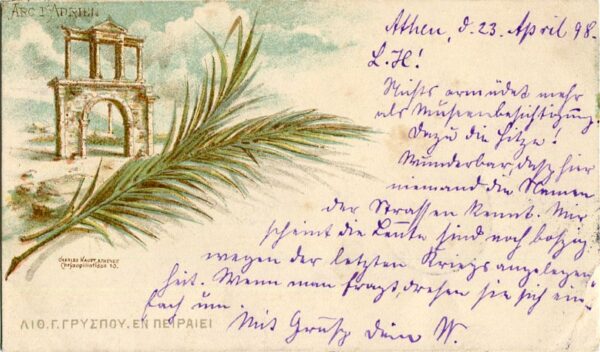 ARC D'ADRIEN
Athen, d. 23. April 98.
L. H!
Nichts ermüdet mehr
als Museenbesichtigung!
Dazu die Hitze!
Wunderbar, dass hier
niemand die Namen
der Strassen kennt. Mir
scheint die Leute sind noch bohzig
wegen der letzten Kriegsangelegen
heit. Wenn man fragt, drehen sie sich ein-
fach um.
Mit Gruss Dein W.
CHARLES HAUPT, ATHENES
ΛΙΘ. Γ. ΓΡΥΣΠΟΥ. ΕΝ ΠΕΙΡΑΙΕΙ